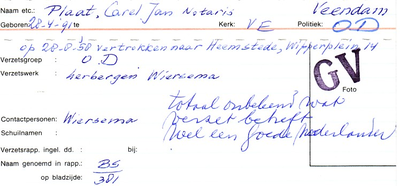 Naam etc.: Plaat, Carel Jan Notaris Veendam
Geboren: 28-4-91 / te Kerk: VE Politiek: OD
op 28-8-50 vertrokken naar Heemstede, Wipperplein 14
Verzetsgroep : OD
Verzetswerk : herbergen Wiersema
GV
Foto
totaal onbekend wat
Contactpersonen: Wiersema verzet betreft
Schuilnaam : Wel een goede Nederlander
Verzetsrapp. ingel. dd. : bij:
Naam genoemd in rapp.: BS
op bladzijde: 381